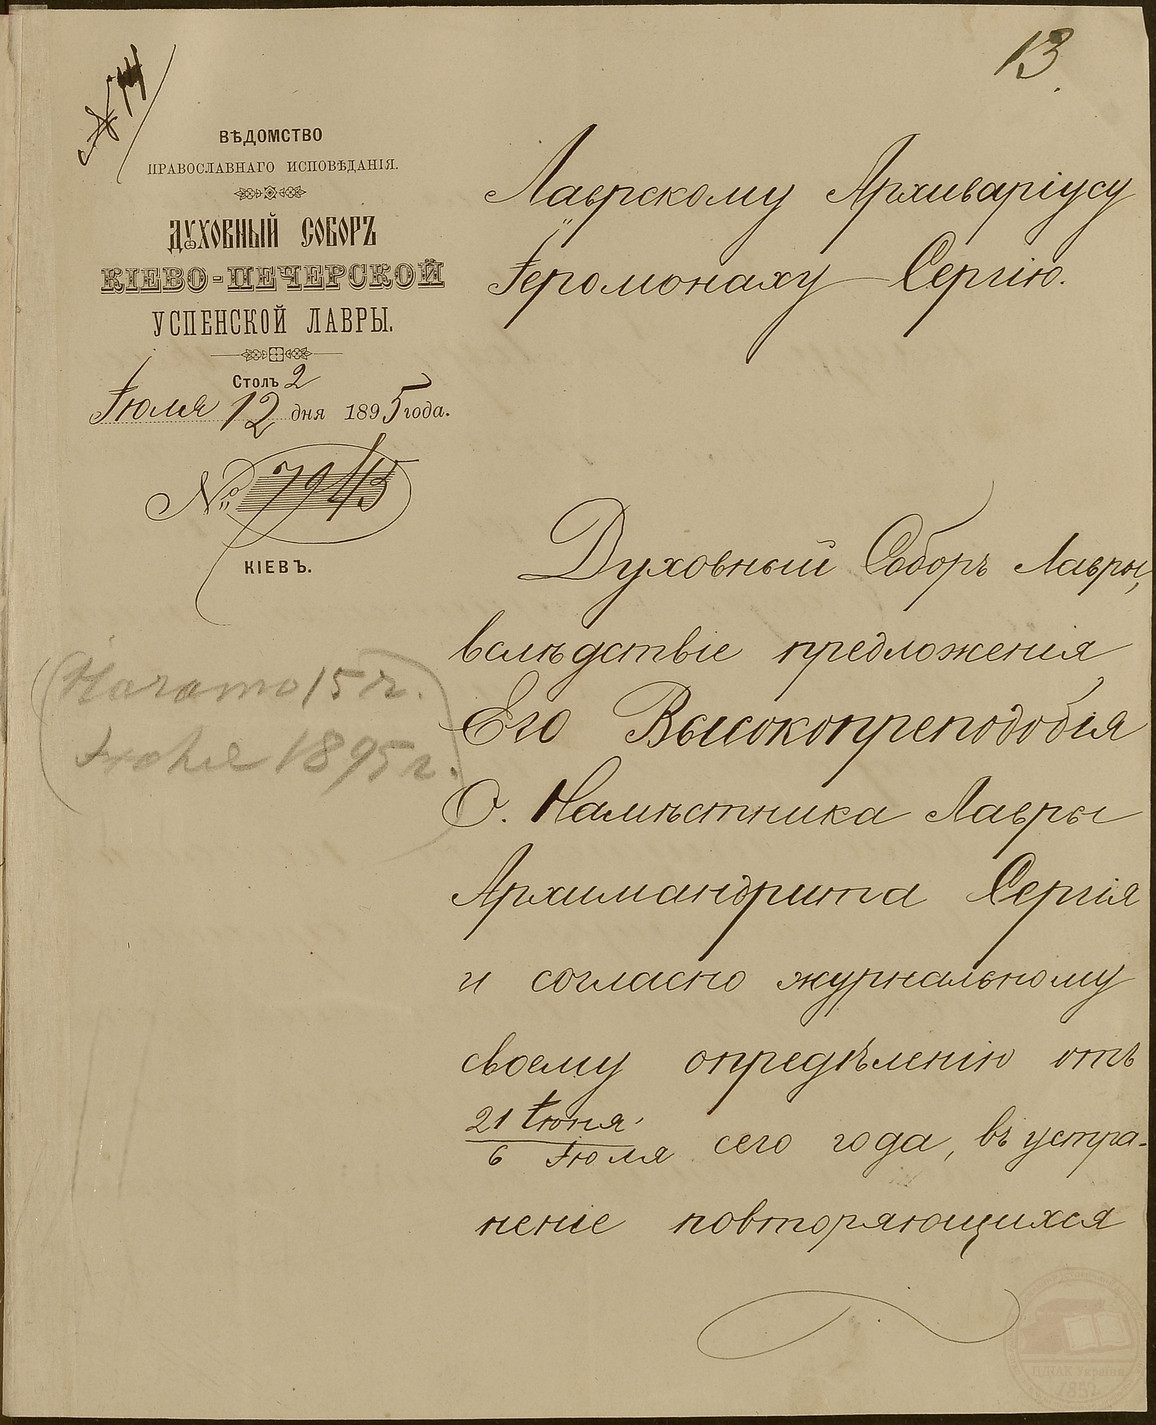 13
№ 14
ВѢДОМСТВО
ПРАВОСЛАВНАГО ИСПОВѢДАНІЯ.
ДУХОВНЫЙ СОБОРЪ
КІЕВО-ПЕЧЕРСКОЙ
УСПЕНСКОЙ ЛАВРЫ.
Столъ 2
Іюля 12 дня 1895 года.
№ 7945
КІЕВЪ.
Начато 15 г.
Іюля 1895 г.
Лаврскому Архиваріусу
Іеромонаху Сергію.
Духовный Соборъ Лавры,
вслѣдствіе предложенія
Его Высокопреподобія
О. Намѣстника Лавры
Архимандрита Сергія
и согласно журнальному
своему опредѣленію отъ
21 Іюня / 6 Іюля сего года, въ устра-
неніе повторяющихся
ЦДІАК України
1852